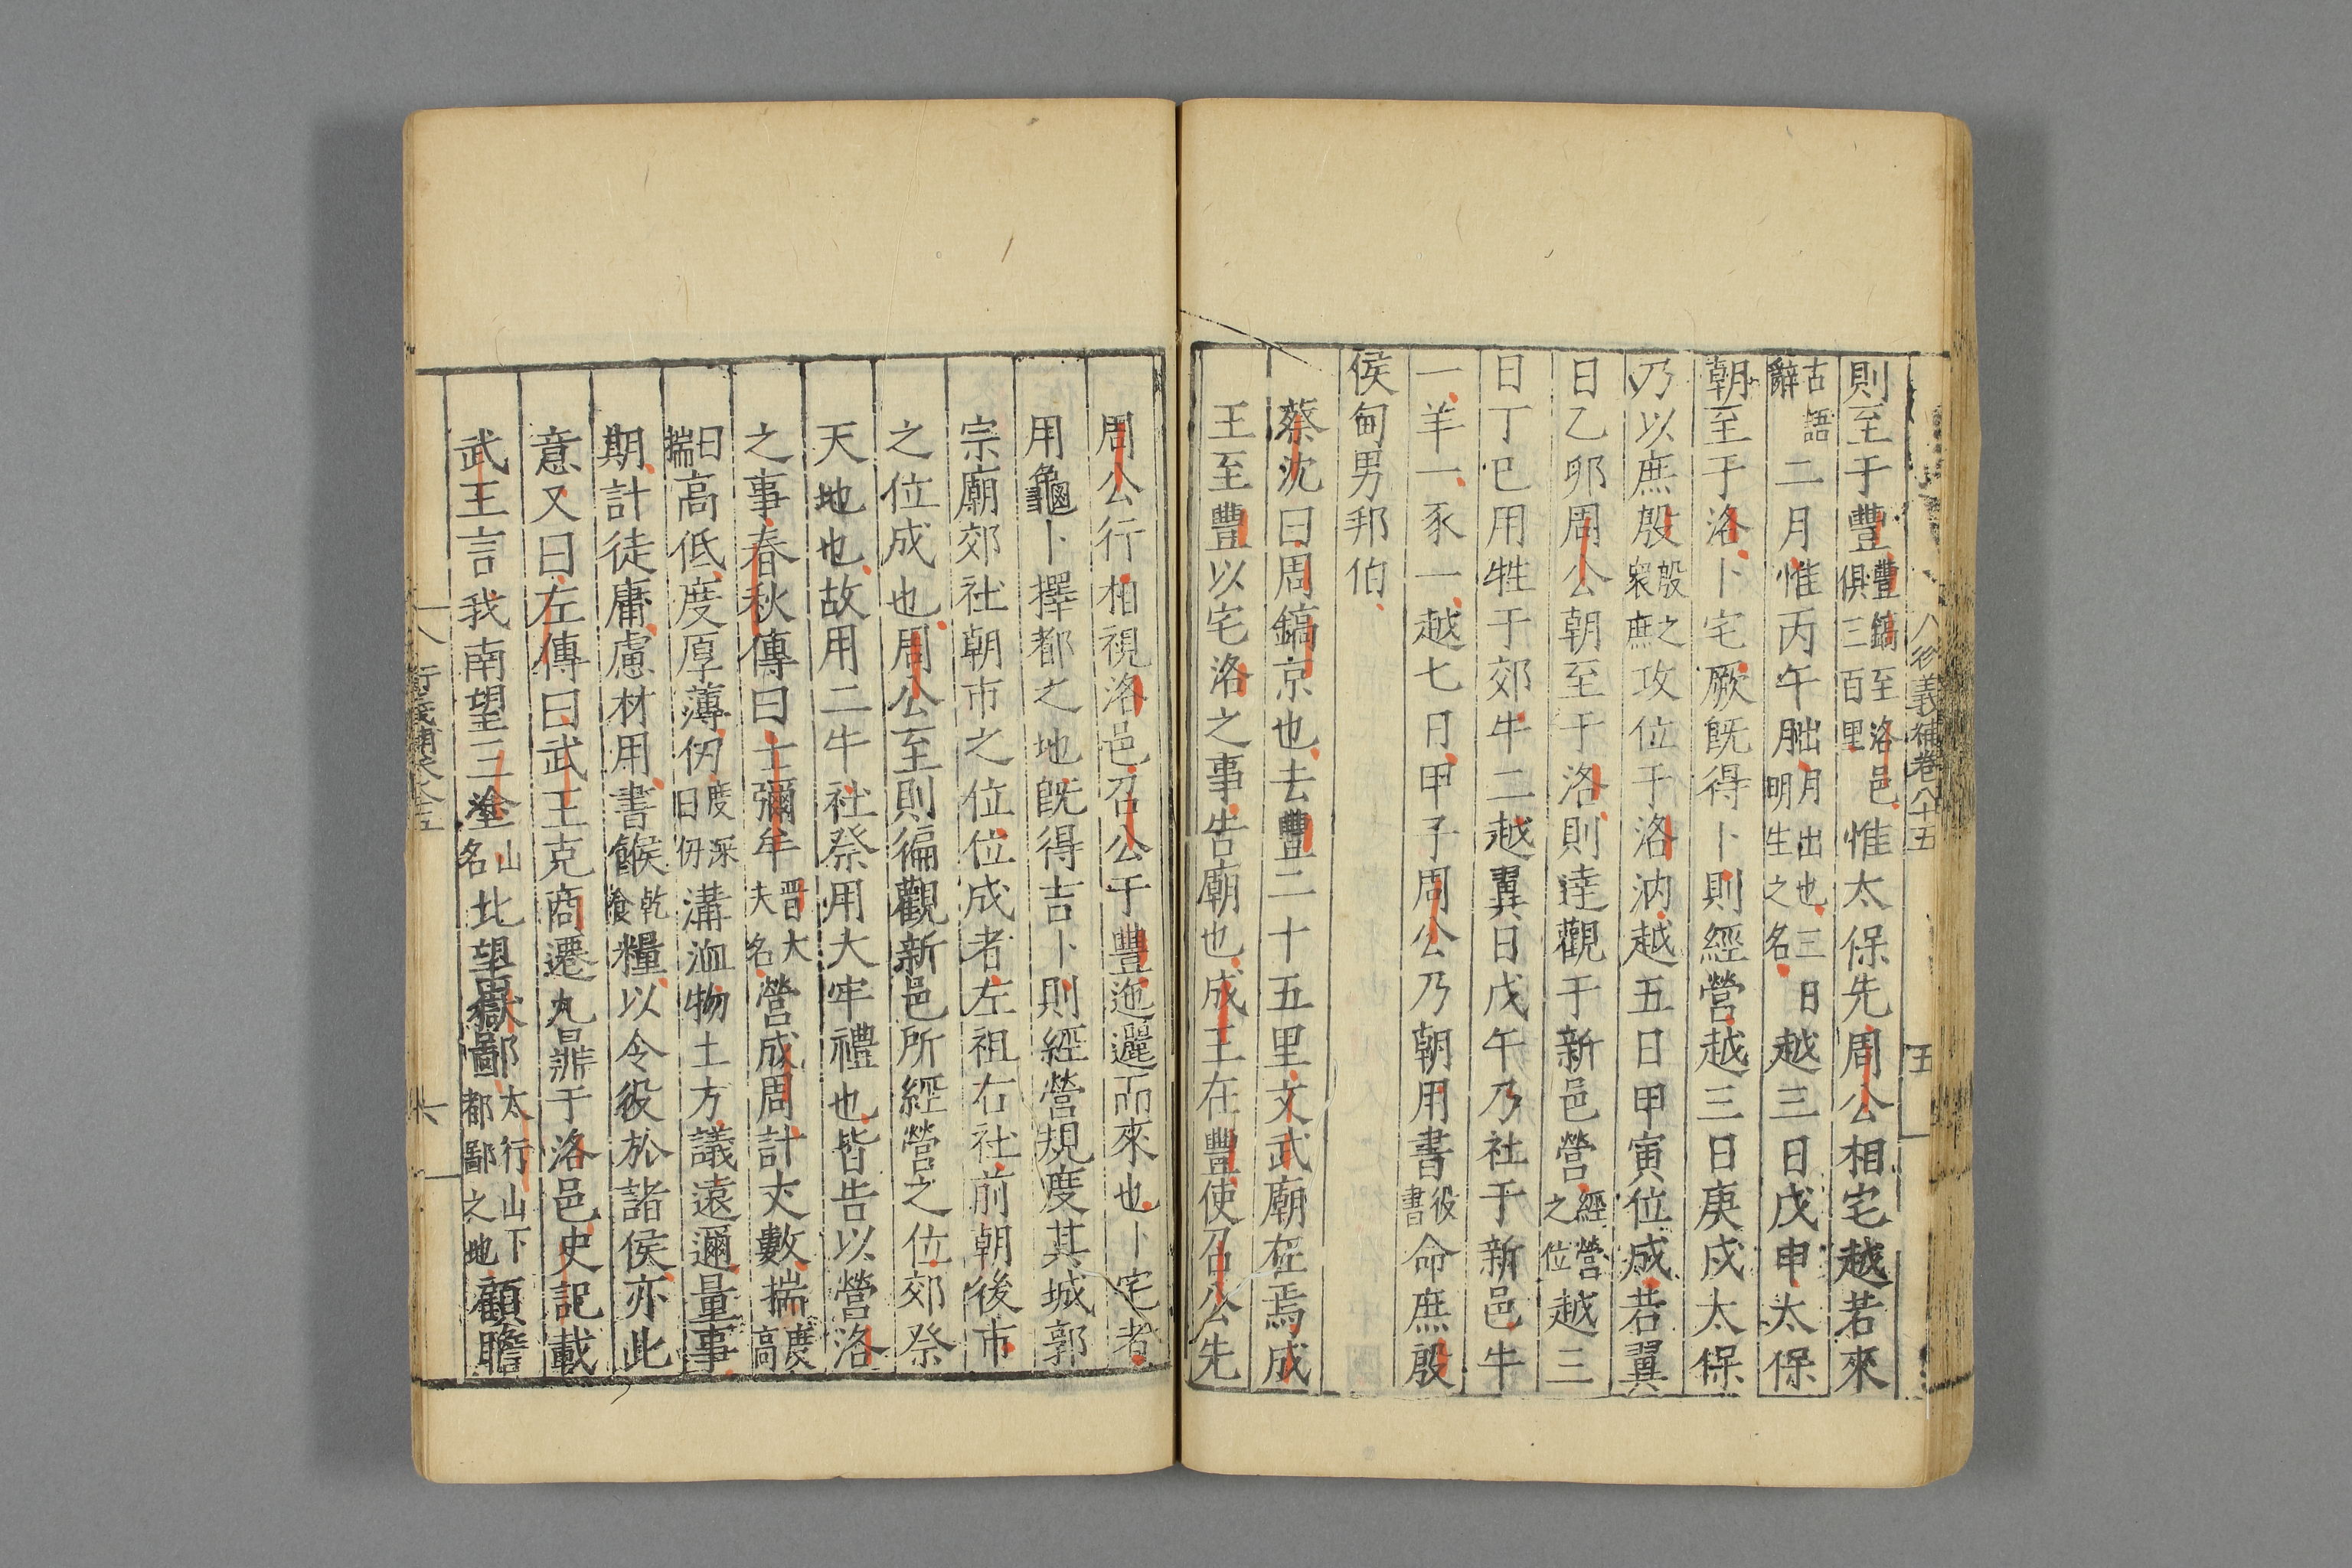 則至于豐豐鎬至洛邑俱三百里惟太保先周公相宅越若來
古語辭二月惟丙午朏朏月出也三日明生之名越三日戊申太保
朝至于洛卜宅厥既得卜則經營越三日庚戌太保
乃以庶殷殷之衆庶攻位于洛汭越五日甲寅位成若翼
日乙卯周公朝至于洛則達觀于新邑營經營之位越三
日丁巳用牲于郊牛二越翼日戊午乃社于新邑牛
一羊一豕一越七日甲子周公乃朝用書役書命庶殷
侯甸男邦伯
蔡沈曰周鎬京也去豐二十五里文武廟在焉成
王至豐以宅洛之事告廟也成王在豐使召公先
周公行相視洛邑召公于豐迤邐而來也卜宅者
用龜卜擇都之地既得吉卜則經營規度其城郭
宗廟郊社朝市之位位成者左祖右社前朝後市
之位成也周公至則徧觀新邑所經營之位郊祭
天地也故用二牛社祭用大牢禮也皆告以營洛
之事春秋傳曰士彌牟晋大夫名營成周計丈數揣度高
曰揣高低度厚薄仞度深曰仞溝洫物土方議遠邇量事
期計徒庸慮材用書餱乾食糧以令役於諸侯亦此
意又曰左傳曰武王克商遷九鼎于洛邑史記載
武王言我南望三塗山名北望嶽鄙太行山下都鄙之地顧瞻
衍義補卷八十五
五
六